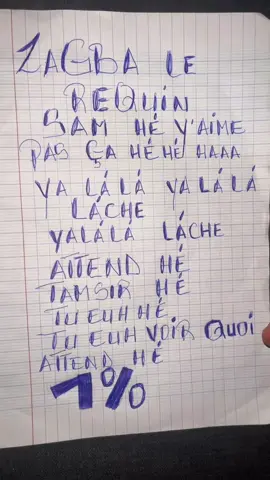 ZAGBA LE
REQUIN
SAM HÉ Y'AIME
PAS ÇA HÉ HÉ HAAA
YA LÁ LÁ YA LÁ LÁ
LÁCHE
YALÁ LÁ LÁCHE
ATTEND HÉ
TAMSIR HÉ
TU EUH HÉ
TU EUH VOIR QUOI
ATTEND HÉ
1%